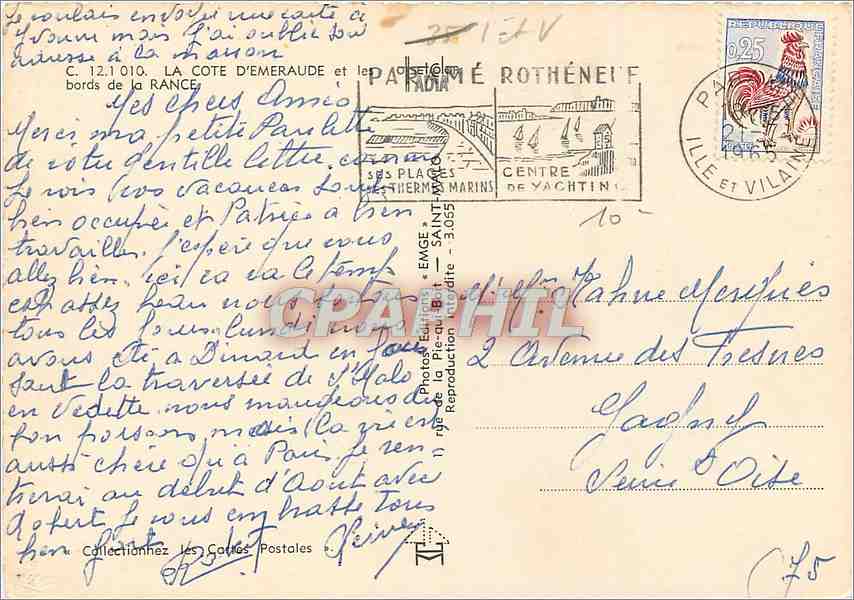 Je voulais envoyer une carte à
Yvonne mais j'ai oublié son
adresse à la maison
C. 12.1 010. LA COTE D'EMERAUDE et les
bords de la RANCE
Mes chers Amis
Merci ma petite Paulette
de votre gentille lettre comme
je vois vos vacances sont
bien occupées et Patrice a bien
travaillé. j'espère que vous
allez bien. ici ça va le temps
est assez beau nous sortons
tous les jours. lundi nous
avons été à Dinard en
la traversée de St Malo
en vedette. nous mangeons du
bon poisson mais la vie est
aussi chère qu'à Paris. je ren-
trerai au début d'Aout avec
Robert je vous embrasse tous
bien fort
« Collectionnez les Cartes Postales »
Photos - Editions « EMGE »
rue de la Pie-qui-Boit — SAINT-MALO
Reproduction interdite - 3.055
PARAMÉ ROTHÉNEUF
SES PLAGES
SES THERMES MARINS
CENTRE
DE YACHTING
REPUBLIQUE FRANÇAISE
0,25
PARAMÉ
1965
ILLE ET VILAINE
10-
M. Mme
2 Avenue des Fresnes
Gagny
Seine & Oise
CPAPHIL
75